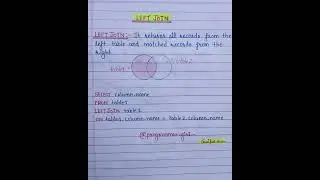 LEFT JOIN
LEFT JOIN : It returns all records from the
left table and matched records from the
right
table1 table2
SELECT column_name
FROM table1
LEFT JOIN table2
ON table1.column_name = table2.column_name